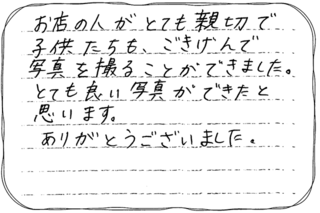 お店の人がとても親切で
子供たちも、ごきげんで
写真を撮ることができました。
とても良い写真ができたと
思います。
ありがとうございました。